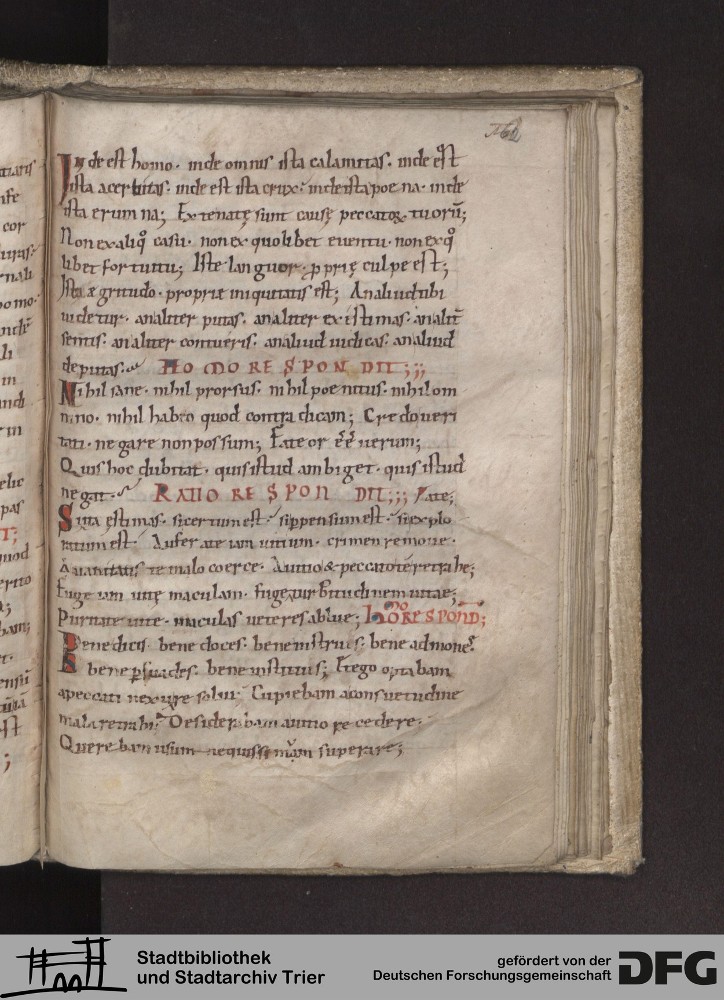 162
Inde est homo. inde omnis ista calamitas. inde est
ista acerbitas. inde est ista crux. inde ista poena. inde
ista erumna; Ex te natę sunt causę peccatoꝝ tuorū;
Non ex aliq̊ casu. non ex quolibet eventu. non ex q̊
libet fortuitu; Iste languor. ꝓprię culpe est;
Ista ægritudo. proprie iniquitatis est; An aliud tibi
uidetur. an aliter putas. an aliter existimas. an alit̄
sentis. an aliter conueris. an aliud iudicas. an aliud
deputas. HOMO RESPONDIT;;;
Nihil sane. nihil prorsus. nihil poenitus. nihil om
nino. nihil habeo quod contradicam; Credo veri
tati. negare non possum; Fateor ēē uerum;
Quis hoc dubitat. quis istud ambiget. quis istud
negat. RATIO RESPONDIT;;;
Si ita estimas. si certum est. si ppensum est. si explo
ratum est. Aufer a te iam uitium. crimen remoue.
A uanitatis te malo coerce. A uitio & peccato te retrahe;
Fuge iam uitę maculam. fuge turpitudinem uitae;
Purna te uite. maculas ueteres ablue; HoMO RESPOND;
Benedicis. bene doces. bene instruis. bene admones.
bene ꝑsuades. bene instituis; Et ego optabam
a peccati nexu solui. Cupiebam a consuetudine
mala retrahi. Desiderabam a uitio recedere.
Querebam usum nequissimum superare;
Stadtbibliothek
und Stadtarchiv Trier
gefördert von der
Deutschen Forschungsgemeinschaft
DFG